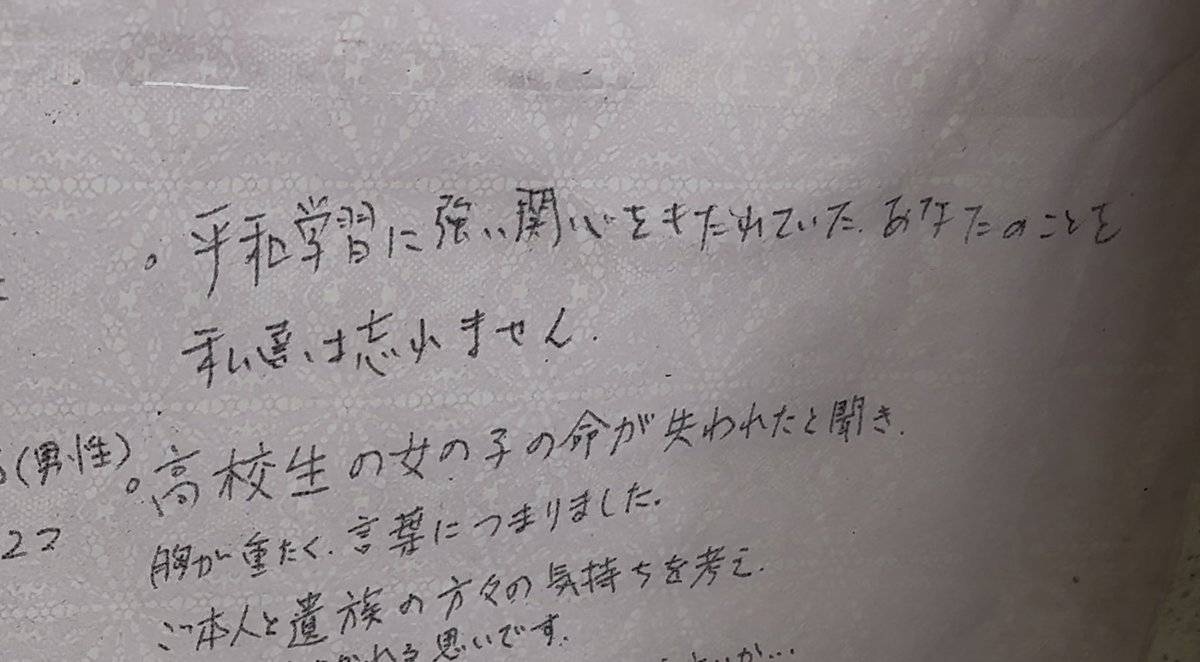 。平和学習に強い関心をもたれていた、あなたのことを
私達は忘れません.
(男性)
。高校生の女の子の命が失われたと聞き、
22
胸が重たく、言葉につまりました。
ご本人と遺族の方々の気持ちを考え、
かれる思いです。
が…